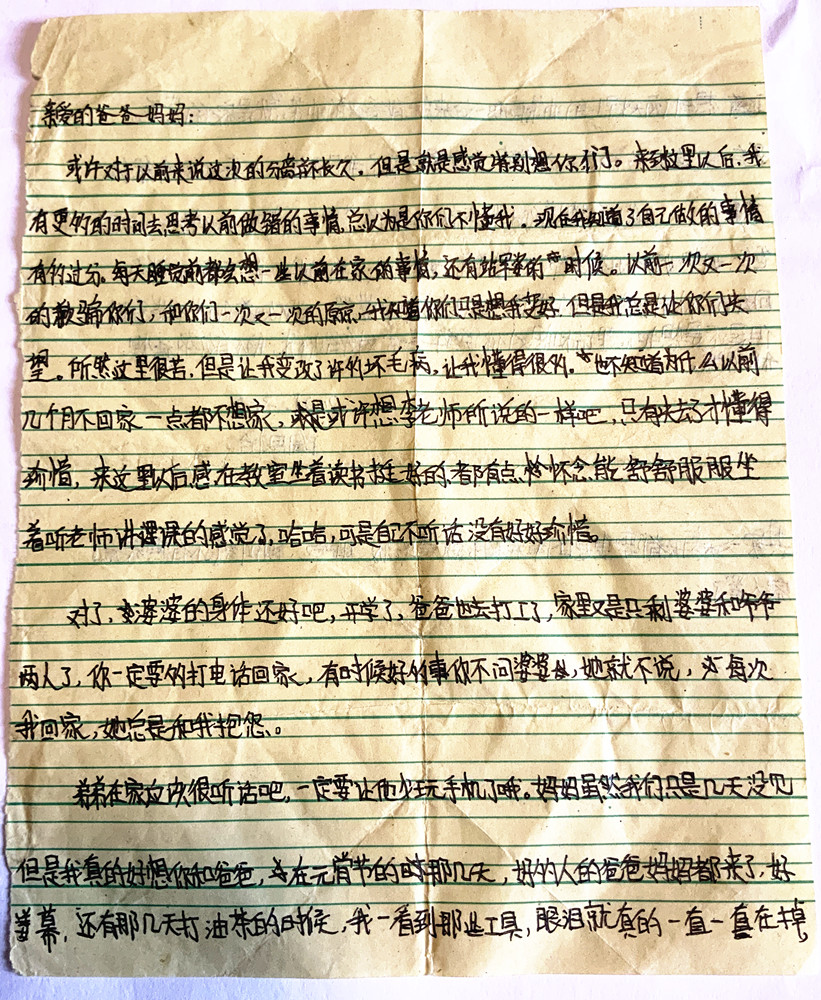 亲爱的爸爸妈妈：
或许对于以前来说这次的分离并不长久，但是就是感觉特别想你们。来到这里以后，我
有更多的时间去思考以前做错的事情，总以为是你们不懂我。现在我知道了自己做的事情
有多过分。每天睡觉前都会想一些以前在家的事情，还有站军姿的时候。以前一次又一次
的欺骗你们，和你们一次又一次的原谅，我知道你们只是想我变好，但是我总是让你们失
望。所然这里很苦，但是让我变改了许多坏毛病，让我懂得很多。也不知道为什么以前
几个月不回家一点都不想家，或许想李老师所说的一样吧，只有失去了才懂得
珍惜，来这里以后感在教室坐着读书挺好的，都有点怀念能舒舒服服坐
着听老师讲课的感觉了，哈哈，可是自己不听话没有好好珍惜。
对了，婆婆的身体还好吧，开学了，爸爸也去打工了，家里又是只剩婆婆和爷爷
两人了，你一定要多打电话回家，有时候好多事你不问婆婆，她就不说，每次
我回家，她总是和我抱怨。
弟弟在家应该很听话吧，一定要让他少玩手机了哦。妈妈虽然我们只是几天没见
但是我真的好想你和爸爸，在元宵节的时那几天，好多人的爸爸妈妈都来了，好
羡慕，还有那几天打油茶的时候，我一看到那些工具，眼泪就真的一直一直在掉，